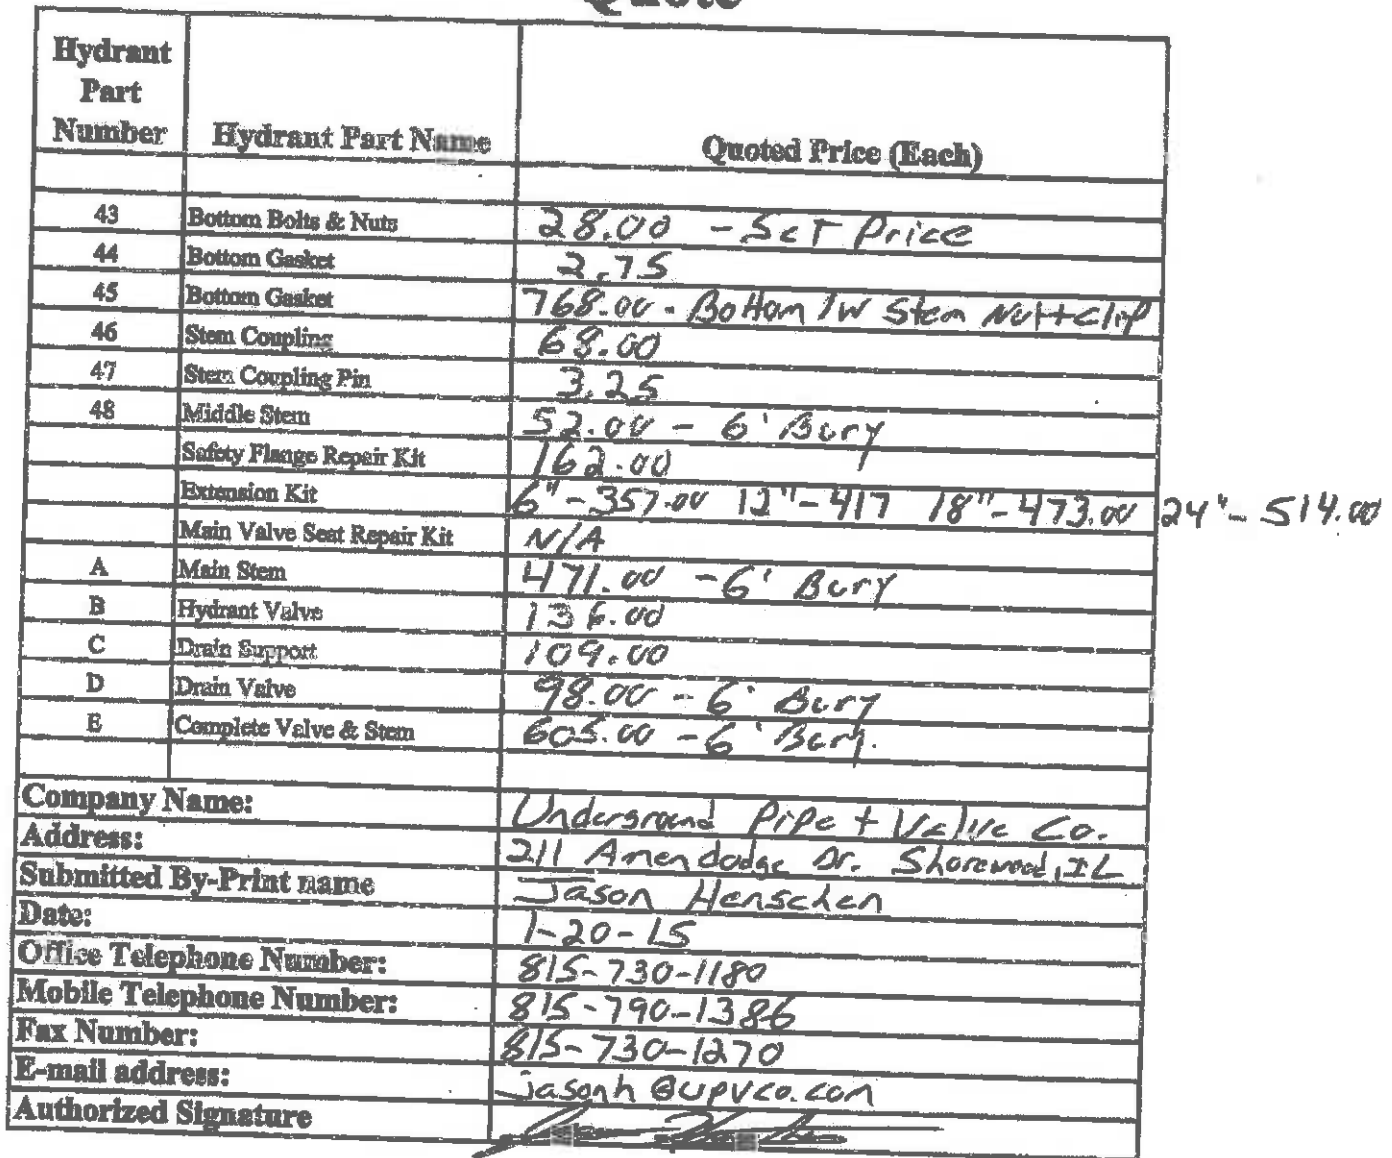 Quote
Hydrant Part Number Hydrant Part Name Quoted Price (Each)
43 Bottom Bolts & Nuts 28.00 - Set Price
44 Bottom Gasket 2.75
45 Bottom Gasket 768.00 - Bottom Iw Stem Nut + clip
46 Stem Coupling 68.00
47 Stem Coupling Pin 3.25
48 Middle Stem 52.00 - 6' Bury
Safety Flange Repair Kit 162.00
Extension Kit 6" - 357.00 12" - 417 18" - 473.00 24" - 514.00
Main Valve Seat Repair Kit N/A
A Main Stem 471.00 - 6' Bury
B Hydrant Valve 136.00
C Drain Support 109.00
D Drain Valve 98.00 - 6' Bury
E Complete Valve & Stem 605.00 - 6' Bury.
Company Name: Underground Pipe + Valve Co.
Address: 211 Amendodge Dr. Shorewood, IL
Submitted By-Print name Jason Henschen
Date: 1-20-15
Office Telephone Number: 815-730-1180
Mobile Telephone Number: 815-790-1386
Fax Number: 815-730-1270
E-mail address: jasonh@upvco.com
Authorized Signature